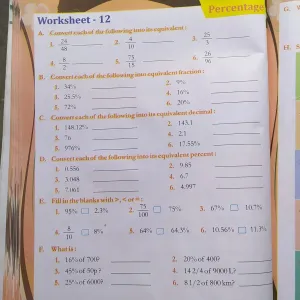 Percentage
Worksheet - 12
A. Convert each of the following into its equivalent :
1. 24/48 2. 4/10 3. 25/5
4. 8/2 5. 75/15 6. 26/96
B. Convert each of the following into its equivalent fraction :
1. 34% 2. 9%
3. 25.5% 4. 16%
5. 72% 6. 20%
C. Convert each of the following into its equivalent decimal :
1. 148.12% 2. 143.1
3. 76 4. 2:1
5. 976% 6. 17.55%
D. Convert each of the following into its equivalent percent :
1. 0.556 2. 9.85
3. 3.048 4. 6.7
5. 7.061 6. 4.997
E. Fill in the blanks with >, < or = :
1. 95% □ 2.3% 2. 75/100 □ 75% 3. 67% □ 10.7%
4. 8/10 □ 8% 5. 64% □ 64.3% 6. 10.56% □ 11.3%
F. What is :
1. 16% of 70? 2. 20% of 40?
3. 45% of 50p? 4. 14 2/4 of 9000 L?
5. 25% of 6000? 6. 8 1/2 of 800 km?
G.
H.